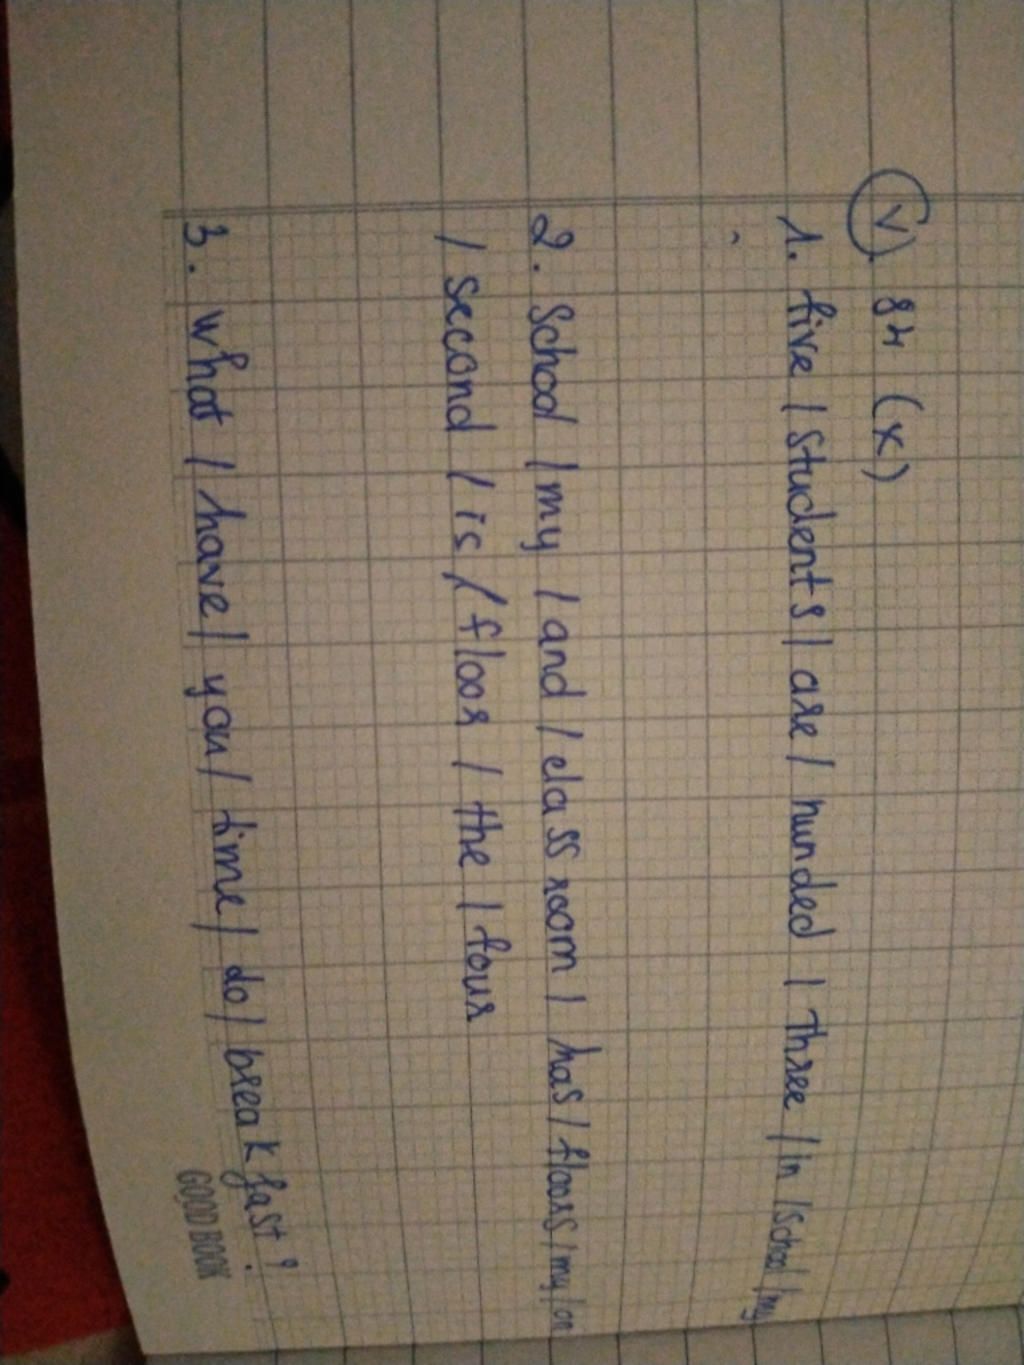 V. 84 (K)
1. five / students / are / hunded / three / in / school / my
2. School / my / and / class room / has / floors / my / on
/ second / is / floor / the / four
3. what / have / you / time / do / breakfast ?
GOOD BOOK